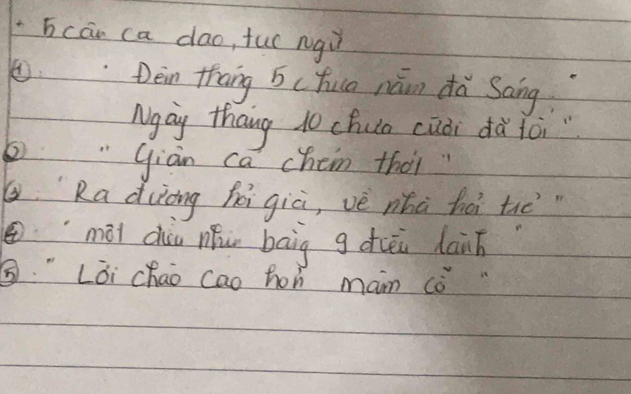 + 5 câu ca dao, tục ngữ
① "Đêm tháng 5 chưa nằm đã sáng
Ngày tháng 10 chưa cười đã tối".
② "Giận cá chém thớt"
③ "Ra đường hỏi già, về nhà hỏi trẻ"
④ "một điều nhịn bằng 9 điều lành"
⑤ "Lời chào cao hơn mâm cỗ"